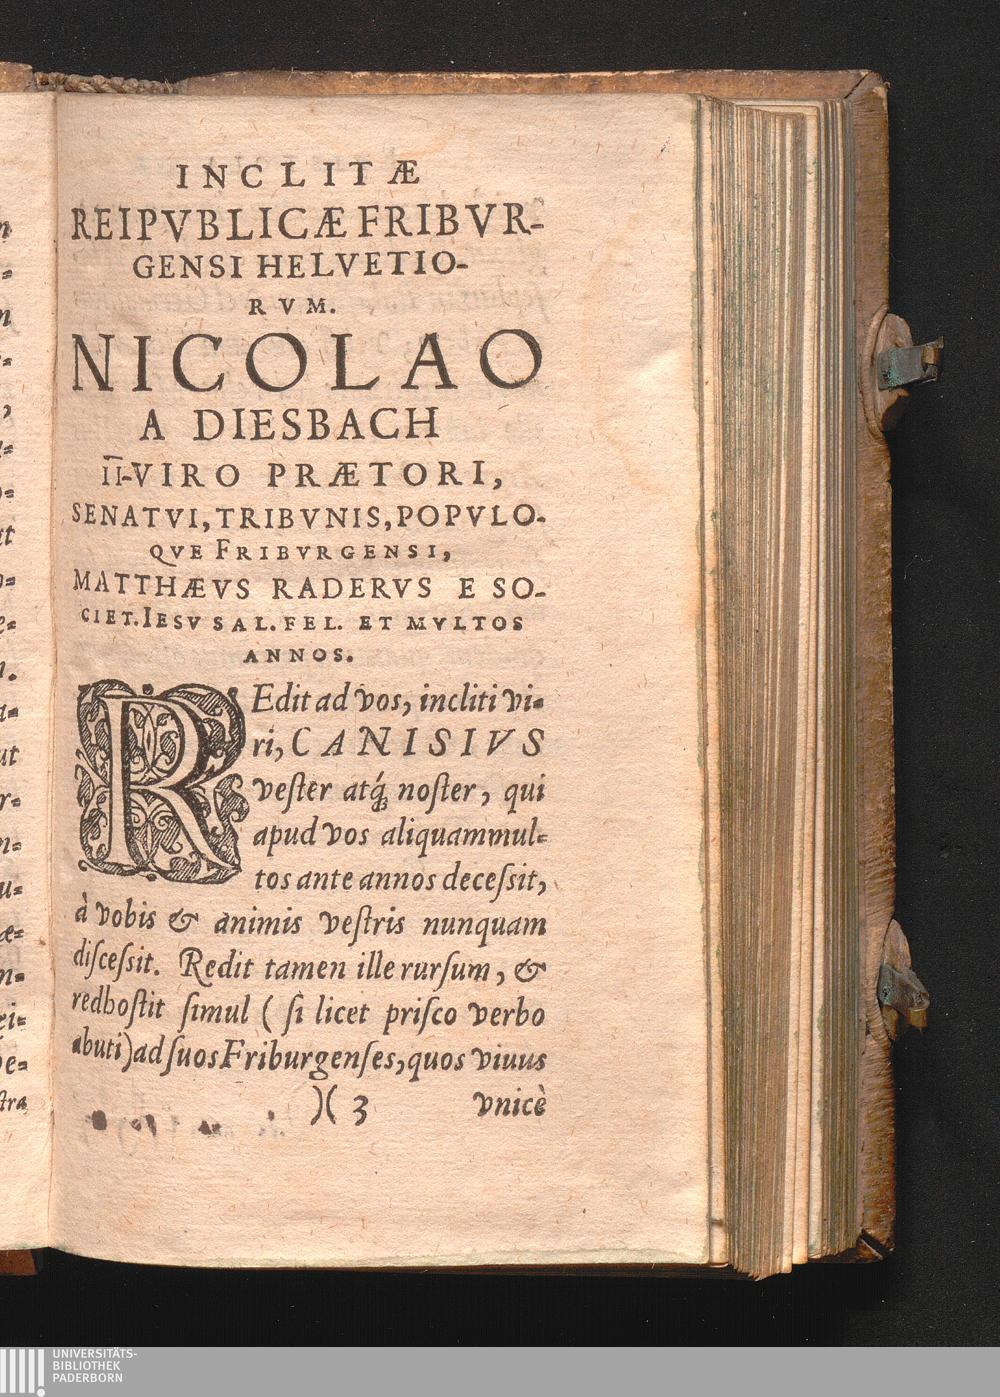 INCLITÆ
REIPVBLICÆ FRIBVR-
GENSI HELVETIO-
RVM.
NICOLAO
A DIESBACH
II-VIRO PRÆTORI,
SENATVI, TRIBVNIS, POPVLO-
QVE FRIBVRGENSI,
MATTHÆVS RADERVS E SO-
CIET. IESV SAL. FEL. ET MVLTOS
ANNOS.
REdit ad vos, incliti vi-
ri, CANISIVS
veſter atq́; noſter, qui
apud vos aliquammul-
tos ante annos deceſsit,
à vobis & animis veſtris nunquam
diſceſsit. Redit tamen ille rurſum, &
redhoſtit ſimul ( ſi licet priſco verbo
abuti) ad ſuos Friburgenſes, quos viuus
)( 3 vnicè
UNIVERSITÄTS-
BIBLIOTHEK
PADERBORN